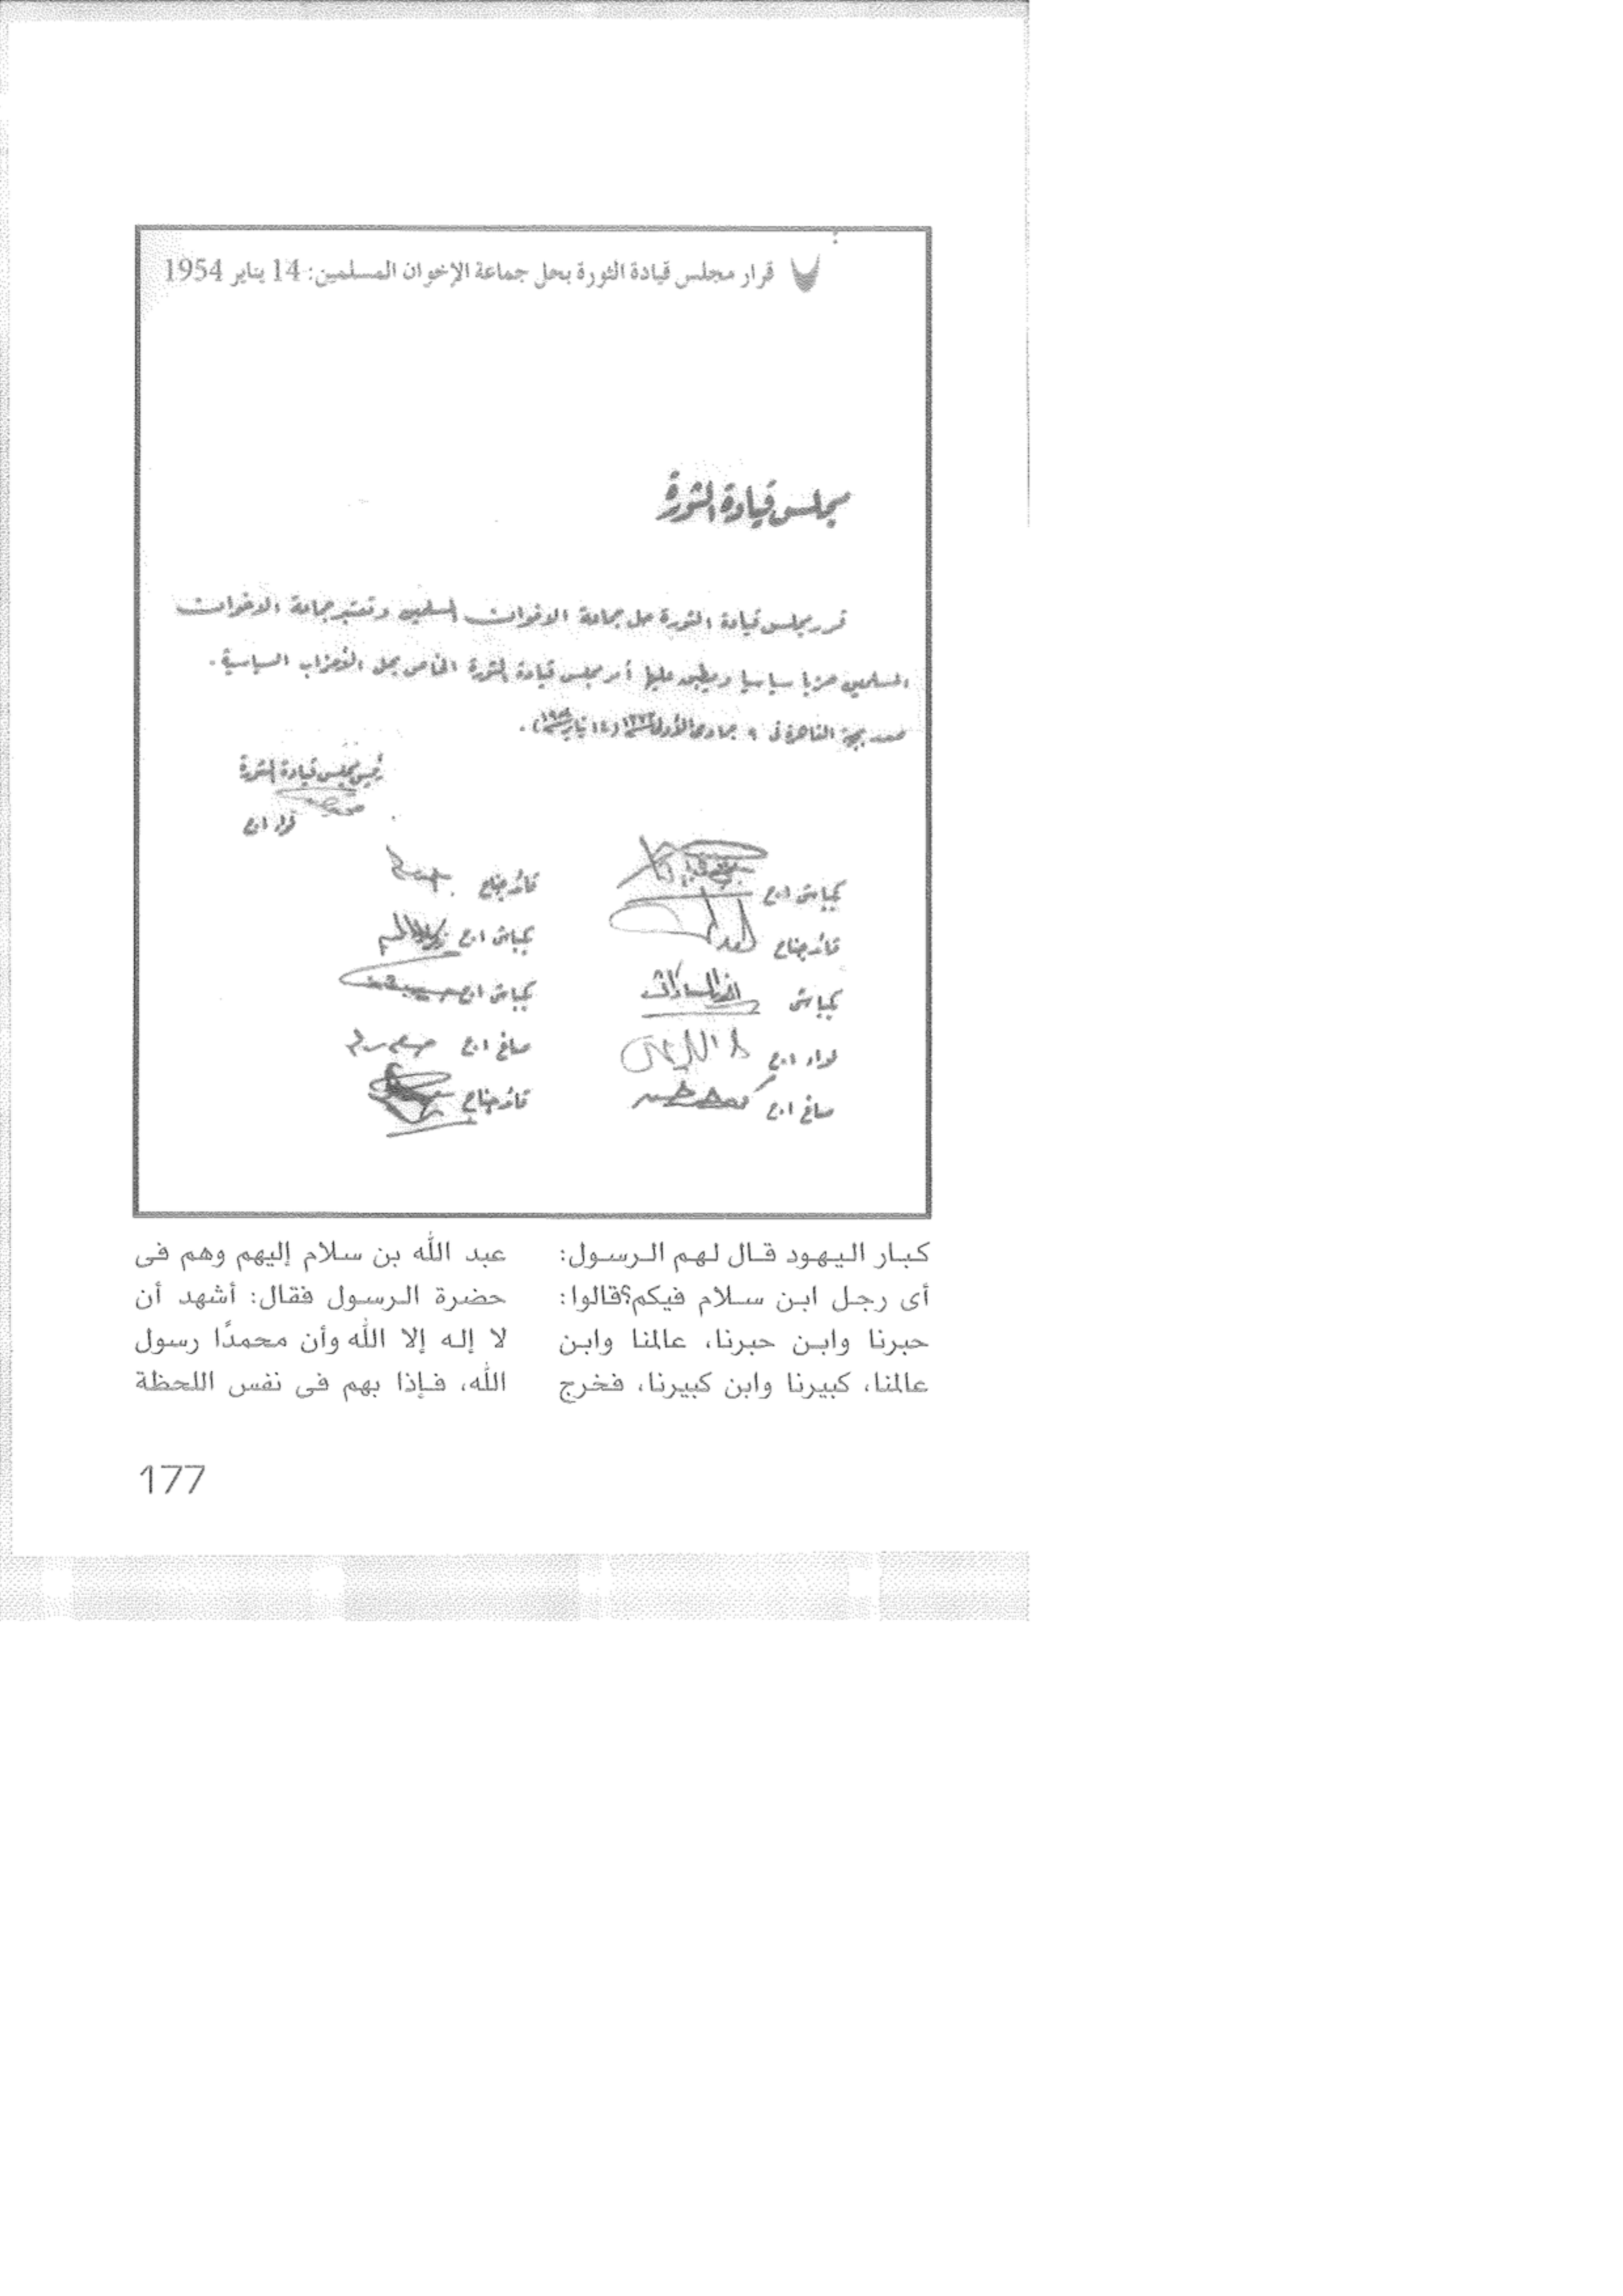 قرار مجلس قيادة الثورة بحل جماعة الإخوان المسلمين: 14 يناير 1954
مجلس قيادة الثورة
قرر مجلس قيادة الثورة حل جماعة الاخوان المسلمين وتعتبر جماعة الاخوان
المسلمين حزبا سياسيا ويطبق عليها أمر مجلس قيادة الثورة الخاص بحل الأحزاب السياسية .
صدر بمدينة القاهرة فى ٩ جمادى الأولى سنة ١٣٧٣ (١٤ يناير سنة ١٩٥٤) .
رئيس مجلس قيادة الثورة
لواء ا.ح
بكباشى ا.ح
قائد جناح
بكباشى أنور السادات
لواء ا.ح
صاغ ا.ح
قائد جناح
بكباشى ا.ح
بكباشى ا.ح
صاغ ا.ح
قائد جناح
كبار اليهود قال لهم الرسول:
أى رجل ابن سلام فيكم؟قالوا:
حبرنا وابن حبرنا، عالمنا وابن
عالمنا، كبيرنا وابن كبيرنا، فخرج
عبد الله بن سلام إليهم وهم فى
حضرة الرسول فقال: أشهد أن
لا إله إلا الله وأن محمدًا رسول
الله، فإذا بهم فى نفس اللحظة
177